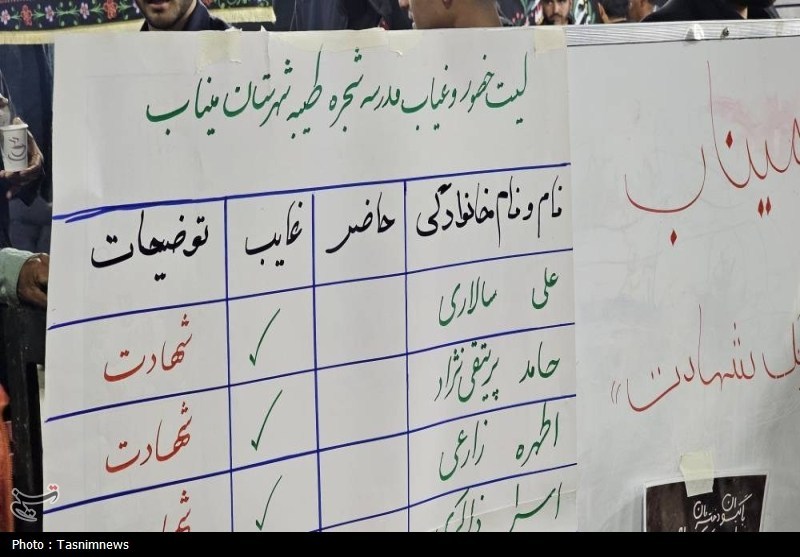 لیست حضور و غیاب مدرسه شجره طیبه شهرستان میناب
نام و نام خانوادگی حاضر غایب توضیحات
علی سالاری ✓ شهادت
حامد پرتیقی نژاد ✓ شهادت
اطهره زارعی ✓ شهادت
ذاکری ✓
میناب
شهادت »
Photo : Tasnimnews
تسنیم